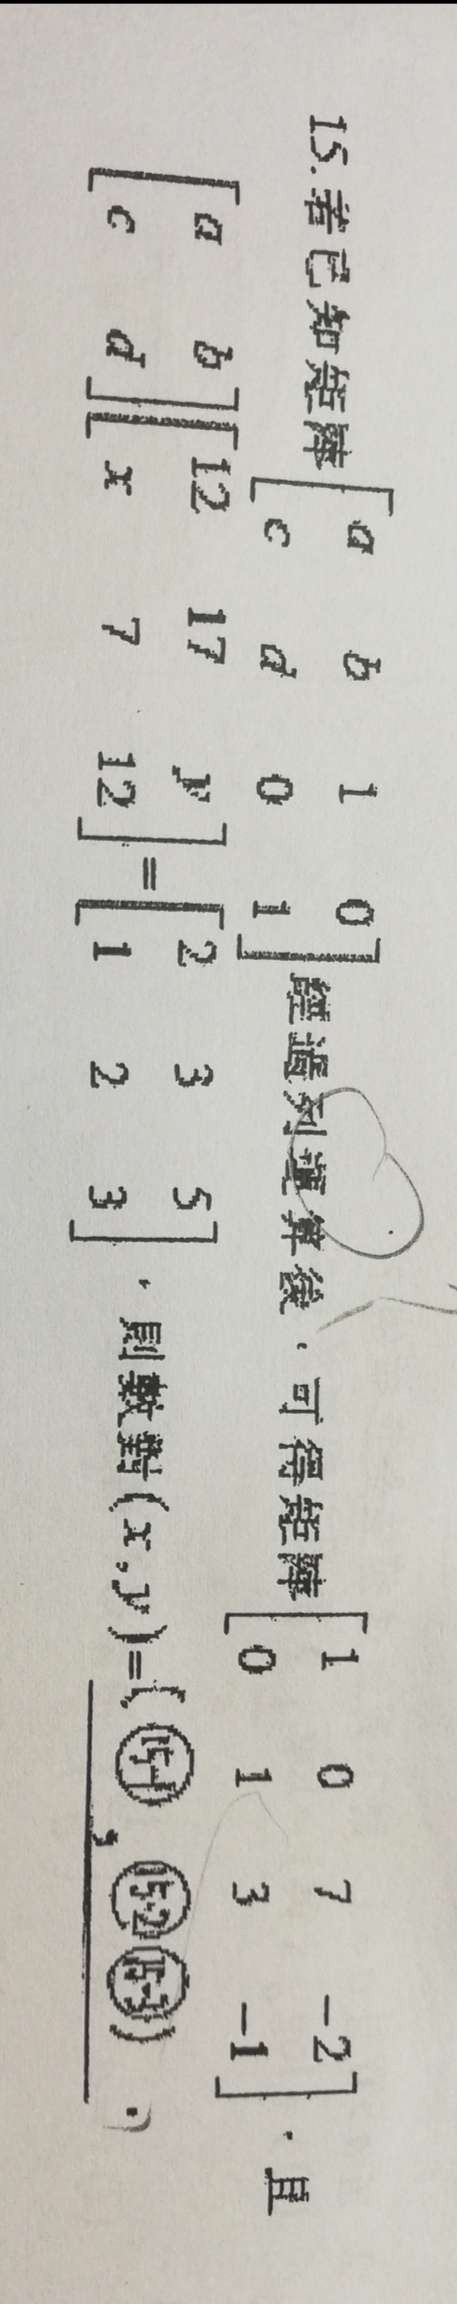 15.若已知矩陣[a b 1 0
c d 0 1]經過列運算後，可得矩陣[1 0 7 -2
0 1 3 -1]，且
[a b
c d][12 17 y
x 7 12]=[2 3 5
1 2 3]，則數對(x,y)=(15-1，15-2 15-3)。